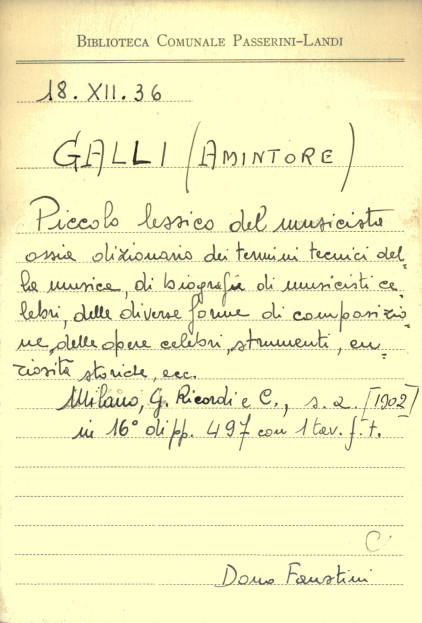 BIBLIOTECA COMUNALE PASSERINI-LANDI
18.XII.36
GALLI (AMINTORE)
Piccolo lessico del musicista
ossia dizionario dei termini tecnici del-
la musica, di biografie di musicisti ce-
lebri, delle diverse forme di composizio-
ne, delle opere celebri, strumenti, cu-
riosità storiche, ecc.
Milano, G. Ricordi e C., s. a. [1902]
in 16° di pp. 497 con 1 tav. f. t.
C
Dono Faustini